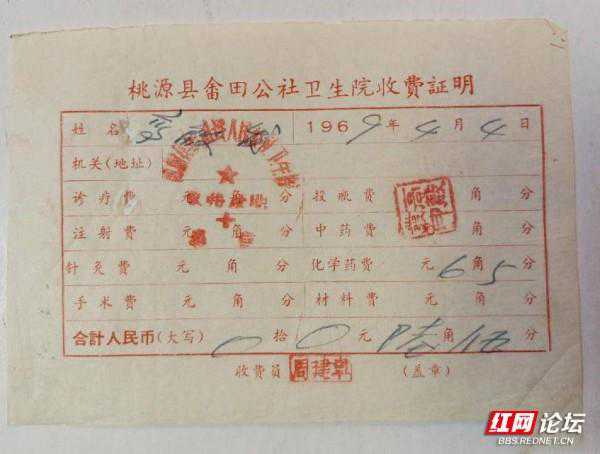 桃源县畲田公社卫生院收费証明
姓名 1969年4月4日
机关(地址)
诊疗费 元 角 分 投碗费 角 分
注射费 元 角 分 中药费 角 分
针灸费 元 角 分 化学药费 元6角5分
手术费 元 角 分 材料费 元 角 分
合計人民币(大写) 0拾0元陆角伍分
收费员 周建 (盖章)
红网论坛
BBS.REDNET.CN